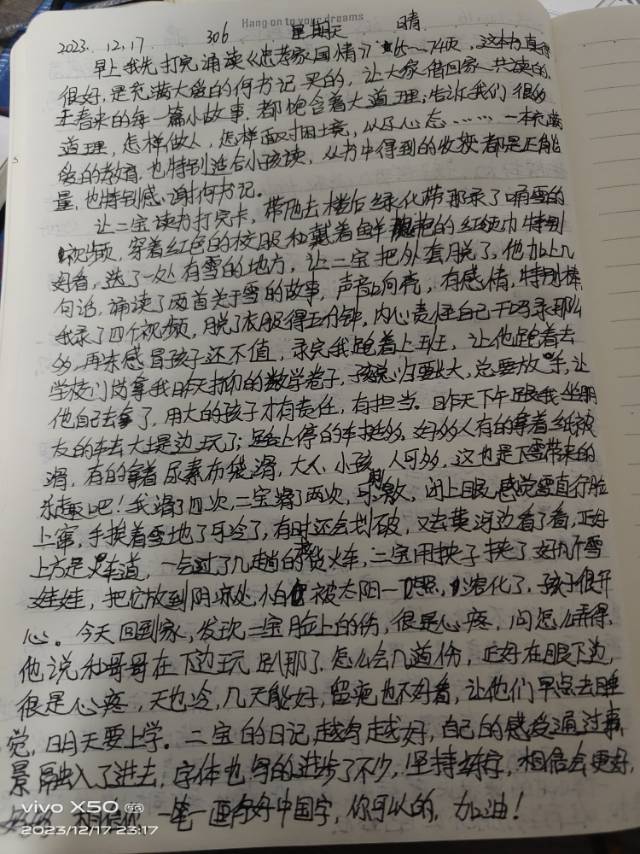 Hang on to your dreams
2023.12.17 306 星期天 晴
早上我先打完诵读《忠孝家国情》65~74页,这本书真得
很好,是充满大爱的何书记买的,让大家借回家一共读的,
王春来的每一篇小故事,都饱含着大道理,告诉我们很多
道理,怎样做人,怎样面对困境,以及心态……一本充满
的教育,也特别适合小孩读,从书中得到的收获都是正能
量,也特别感谢何书记。
让二宝读力打完卡,带他去楼后绿化带那录了诵雪的
视频,穿着红色的校服和戴着鲜艳的红领巾特别
好看,选了一处有雪的地方,让二宝把外套脱了,他加上几
句话,诵读了两首关于雪的故事,声音响亮,有感情,特别棒
我录了四个视频,脱了衣服得五分钟,内心责怪自己干吗录那么
多,再冻感冒孩子还不值,录完我跑着上班,让他跑着去
学校门岗拿我昨天打印的数学卷子,孩子归要长大,总要放手,让
他自己去拿了,用大的孩子才有责任,有担当。昨天下午跟我坐朋
友的车去大堤边玩了;路上停的车挺多,好多人有的拿着纸被
滑,有的拿着尿素布袋滑,大人、小孩,人可多,这也是下雪带来的
乐趣吧!我滑了四次,二宝滑了两次,可刺激,闭上眼感觉雪直往脸
上窜,手挨着雪地了可冷了,有时还会划破,又去黄河边看了看,正好
上方是火车道,一会过了几趟的货火车,二宝用挟子挟了好几个雪
娃娃,把它放到阴凉处,怕被太阳一照,融化了,孩子很开
心。今天回到家,发现二宝脸上的伤,很是心疼,问怎么弄得,
他说和哥哥在下边玩趴那了,怎么会几道伤,正好在眼下边,
很是心疼,天也冷,几天能好,留疤也不好看,让他们早点去睡
觉,明天要上学。二宝的日记越写越好,自己的感受通过事
景融入了进去,字体也写的进步了不少,坚持练字,相信会更好,
相信你一笔一画写好中国字,你可以的,加油!
vivo X50 5G
2023/12/17 23:17